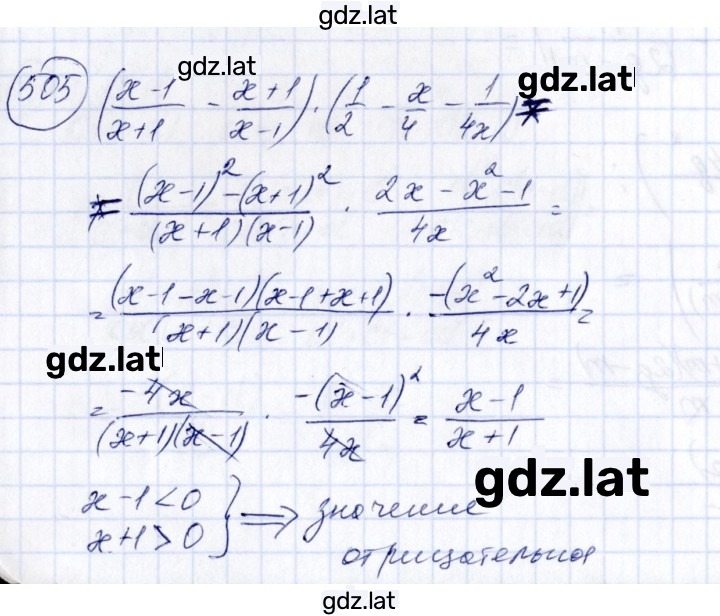 gdz.lat
gdz.lat
505 ((x-1)/(x+1) - (x+1)/(x-1)) · (1/2 - x/4 - 1/(4x)) =
gdz.lat
= ((x-1)² - (x+1)²)/((x+1)(x-1)) · (2x - x² - 1)/(4x) =
= ((x-1-x-1)(x-1+x+1))/((x+1)(x-1)) · (-(x²-2x+1))/(4x) =
gdz.lat
= (-4x)/((x+1)(x-1)) · (-(x-1)²)/(4x) = (x-1)/(x+1)
gdz.lat
x-1<0
x+1>0 } ⇒ значение
отрицательное
gdz.lat